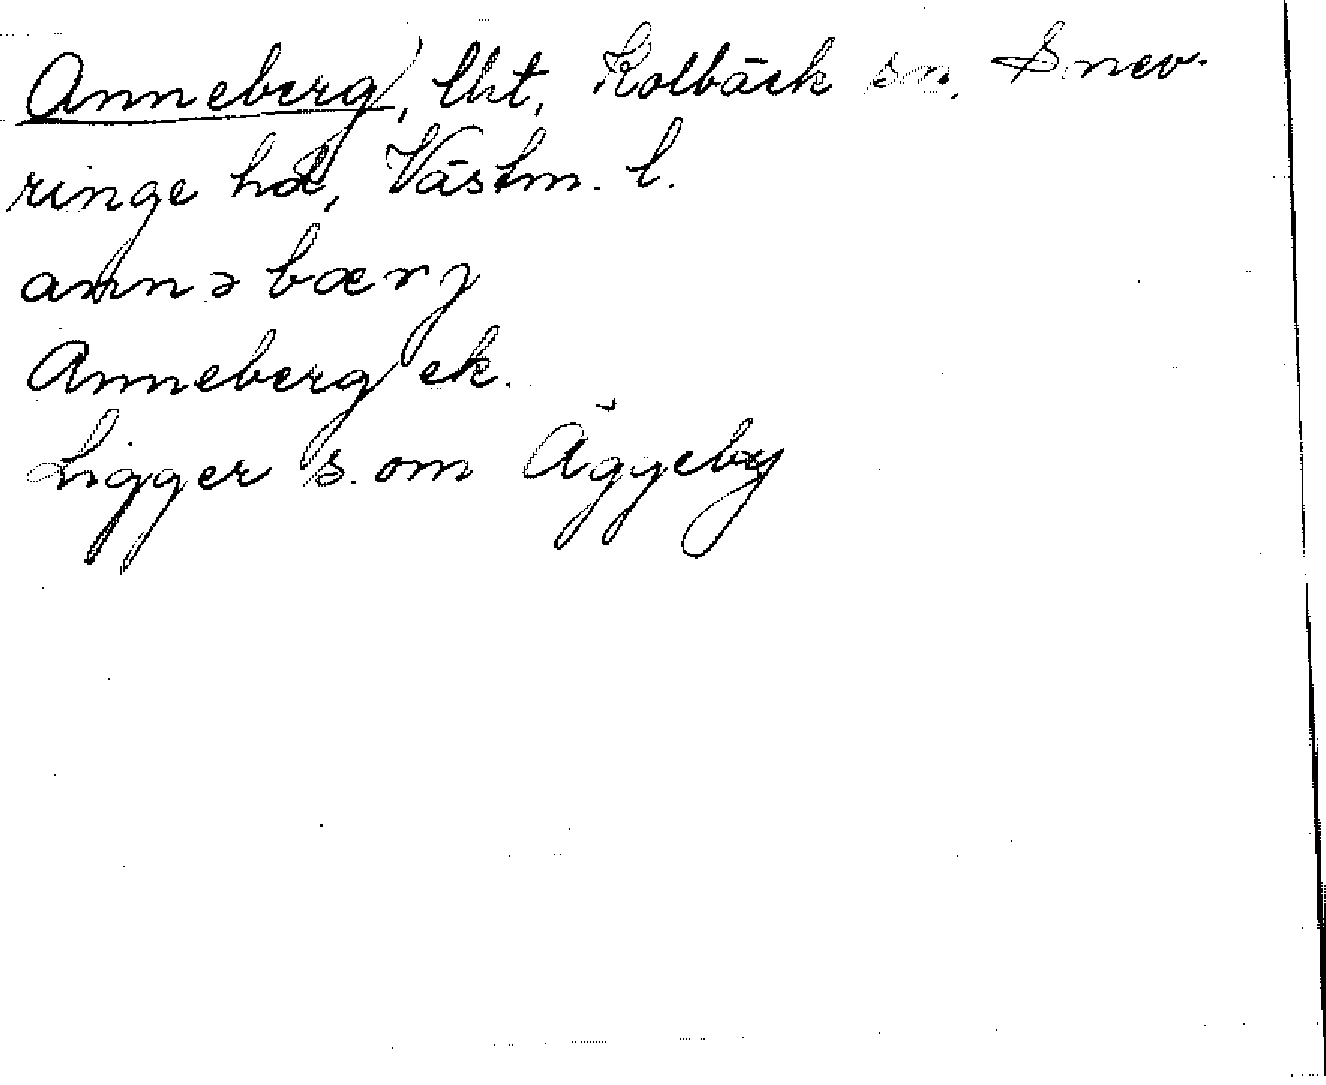 Anneberg, lht, Kolbäck sn. Snev-
ringe hd, Västm. l.
annəbærj
Anneberg ek.
Ligger s. om Äggeby